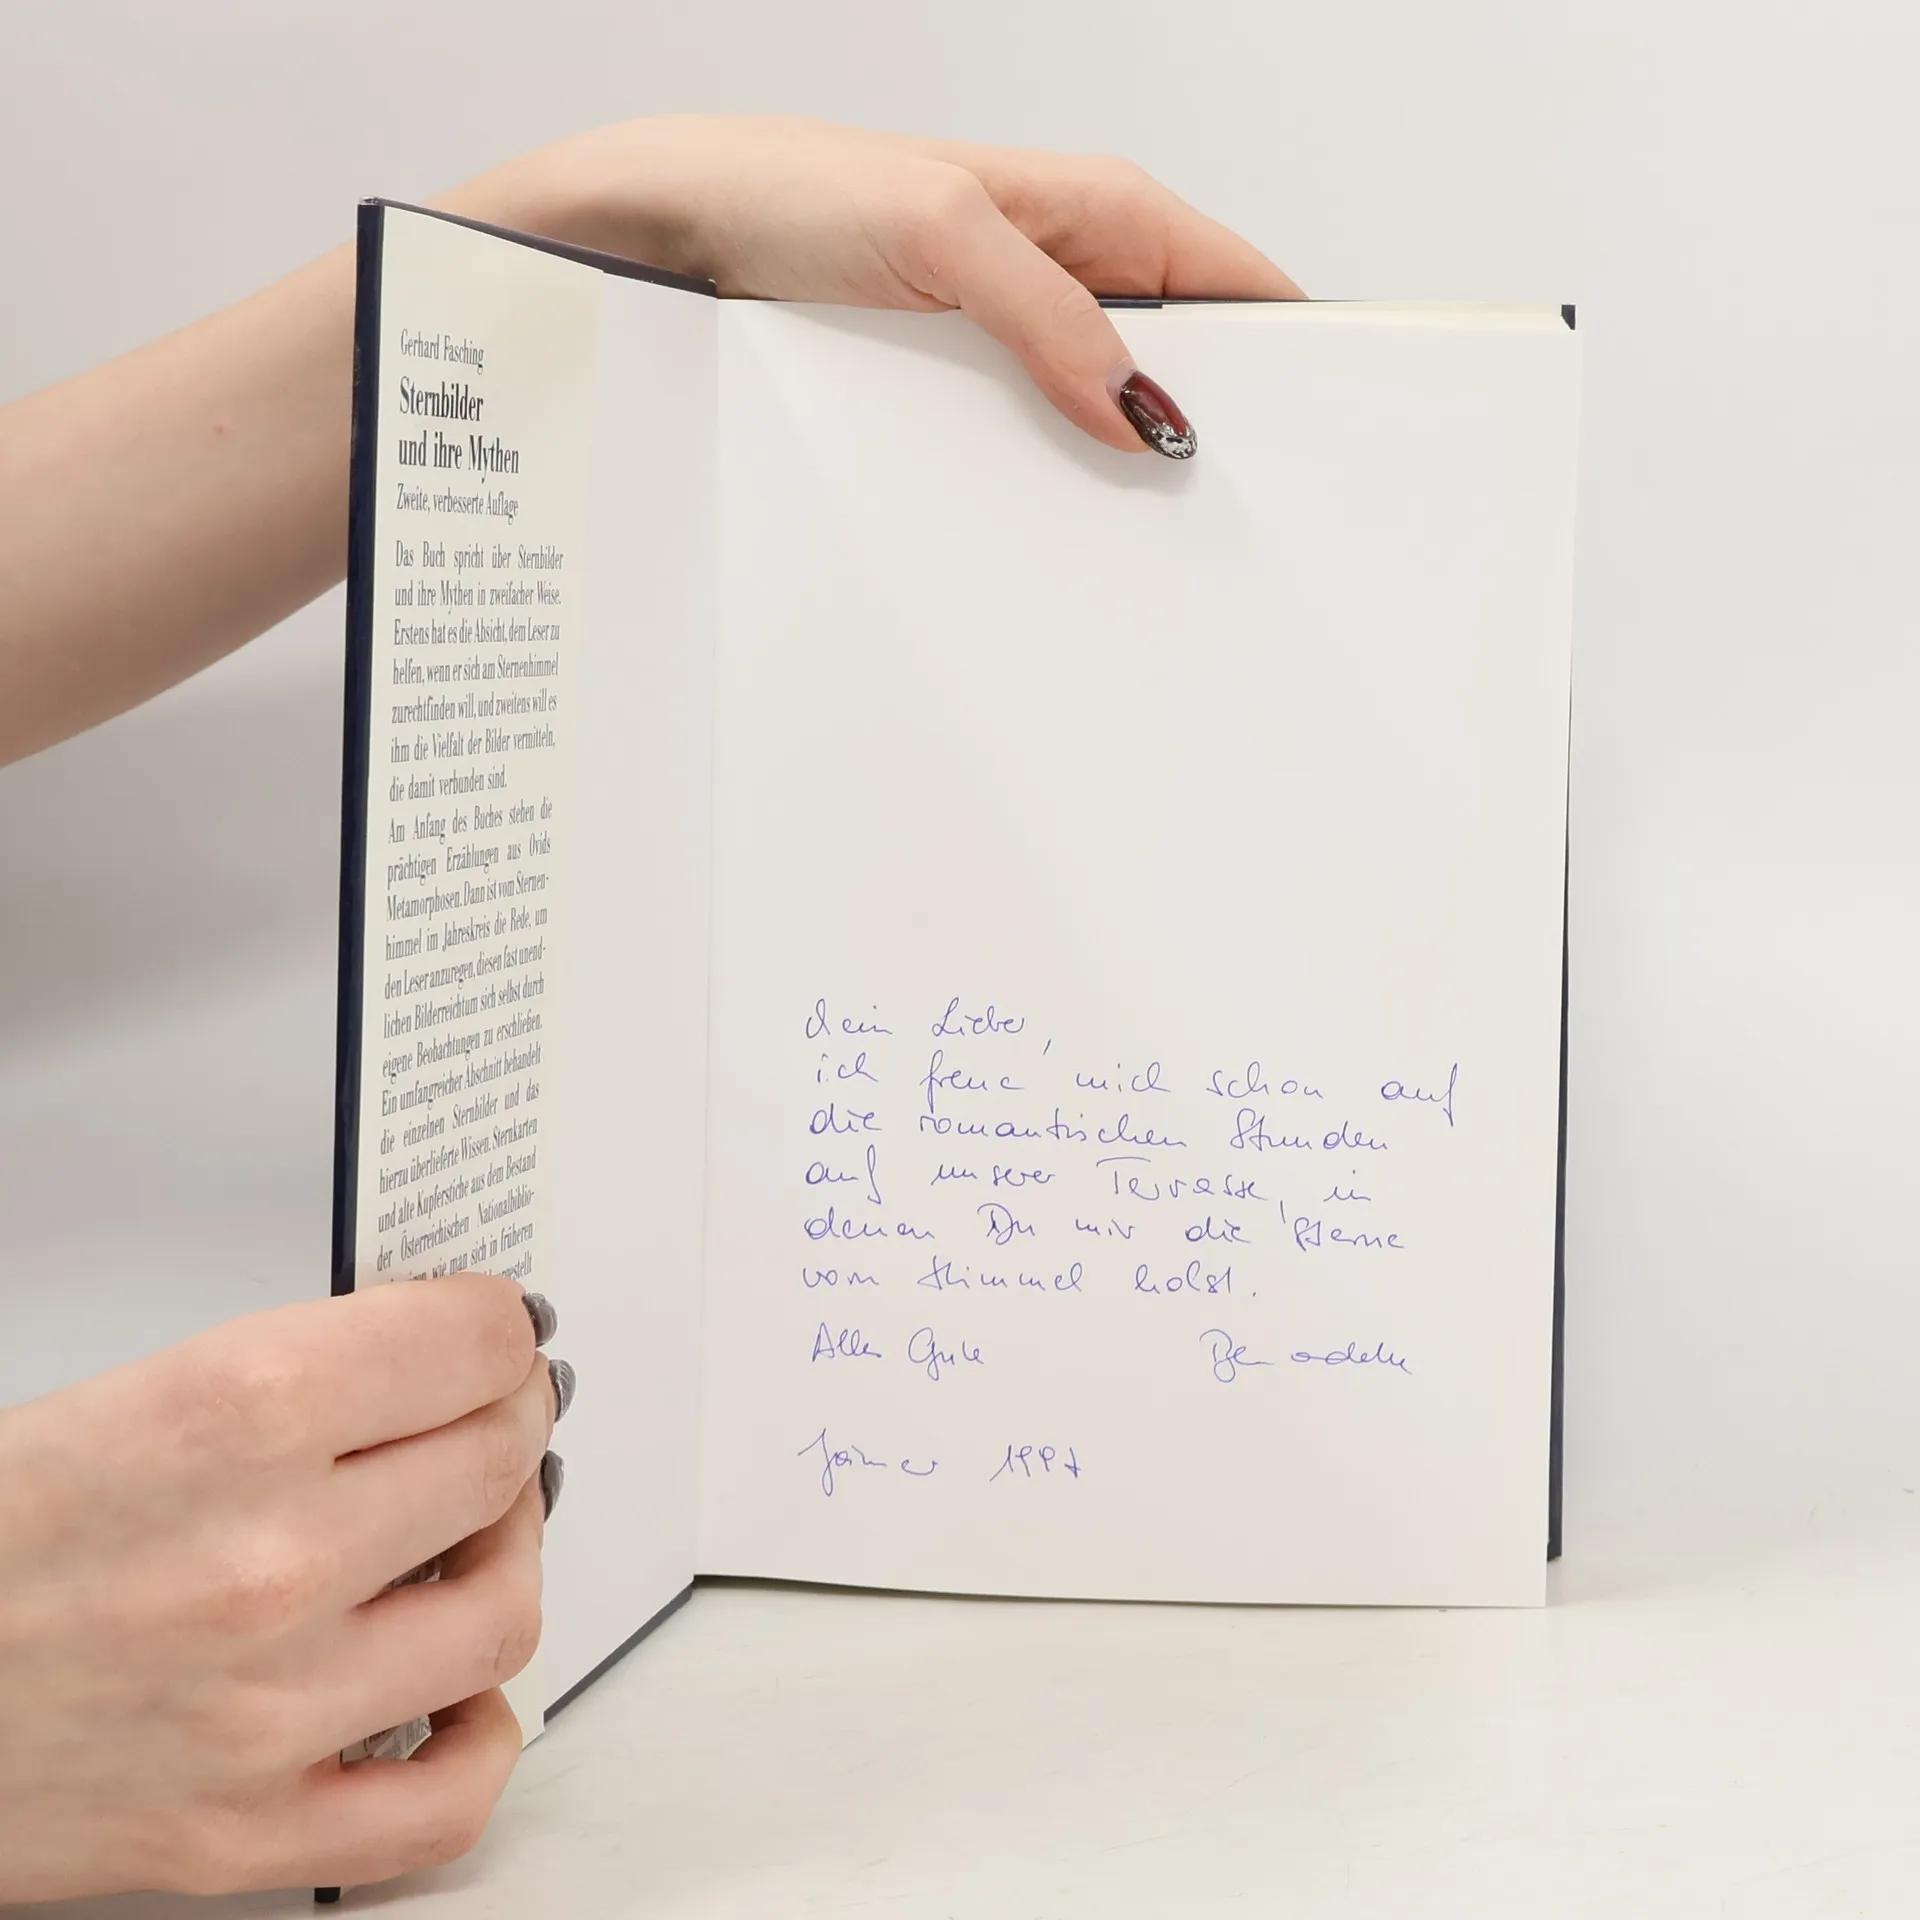 Gerhard Fasching
Sternbilder
und ihre Mythen
Zweite, verbesserte Auflage
Das Buch spricht über Sternbilder
und ihre Mythen in zweifacher Weise.
Erstens hat es die Absicht, dem Leser zu
helfen, wenn er sich am Sternenhimmel
zurechtfinden will, und zweitens will es
ihm die Vielfalt der Bilder vermitteln,
die damit verbunden sind.
Am Anfang des Buches stehen die
prächtigen Erzählungen aus Ovids
Metamorphosen. Dann ist vom Sternen-
himmel im Jahreskreis die Rede, um
den Leser anzuregen, diesen fast unend-
lichen Bilderreichtum sich selbst durch
eigene Beobachtungen zu erschließen.
Ein umfangreicher Abschnitt behandelt
die einzelnen Sternbilder und das
hierzu überlieferte Wissen. Sternkarten
und alte Kupferstiche aus dem Bestand
der Österreichischen Nationalbiblio-
wie man sich in früheren
Mein Lieber,
ich freue mich schon auf
die romantischen Stunden
auf unserer Terrasse, in
denen Du mir die Sterne
vom Himmel holst.
Alles Gute
Jänner 1997